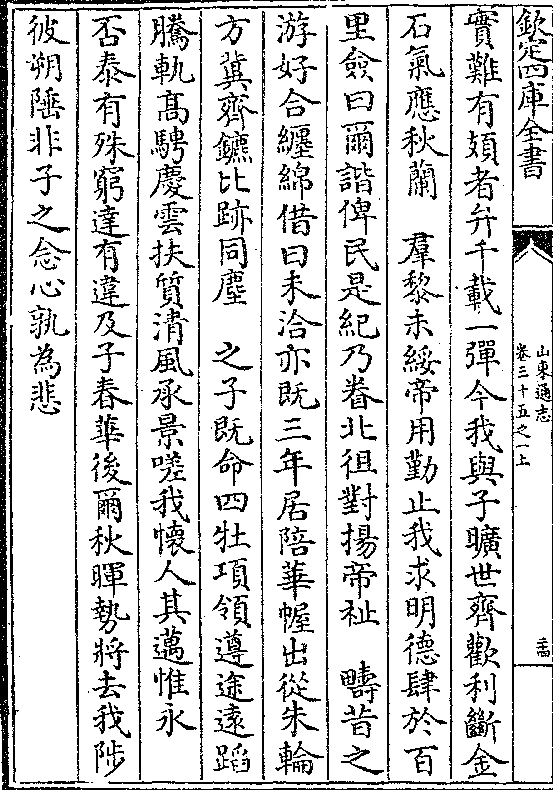 欽定四庫全書
山東通志
卷三十五之一上
實難有頍者弁千載一彈今我與子曠世齊歡利斷金
石氣應秋蘭　羣黎未綏帝用勤止我求明德肆於百
里僉曰爾諧俾民是紀乃眷北徂對揚帝祉　疇昔之
游好合纏綿借曰未洽亦既三年居陪華幄出從朱輪
方冀齊鑣比跡同塵　之子既命四牡項領遵途遠蹈
騰軌高騁慶雲扶質清風承景嗟我懷人其邁惟永
否泰有殊窮達有違及子春華後爾秋暉勢將去我陟
彼朔陲非子之念心孰為悲